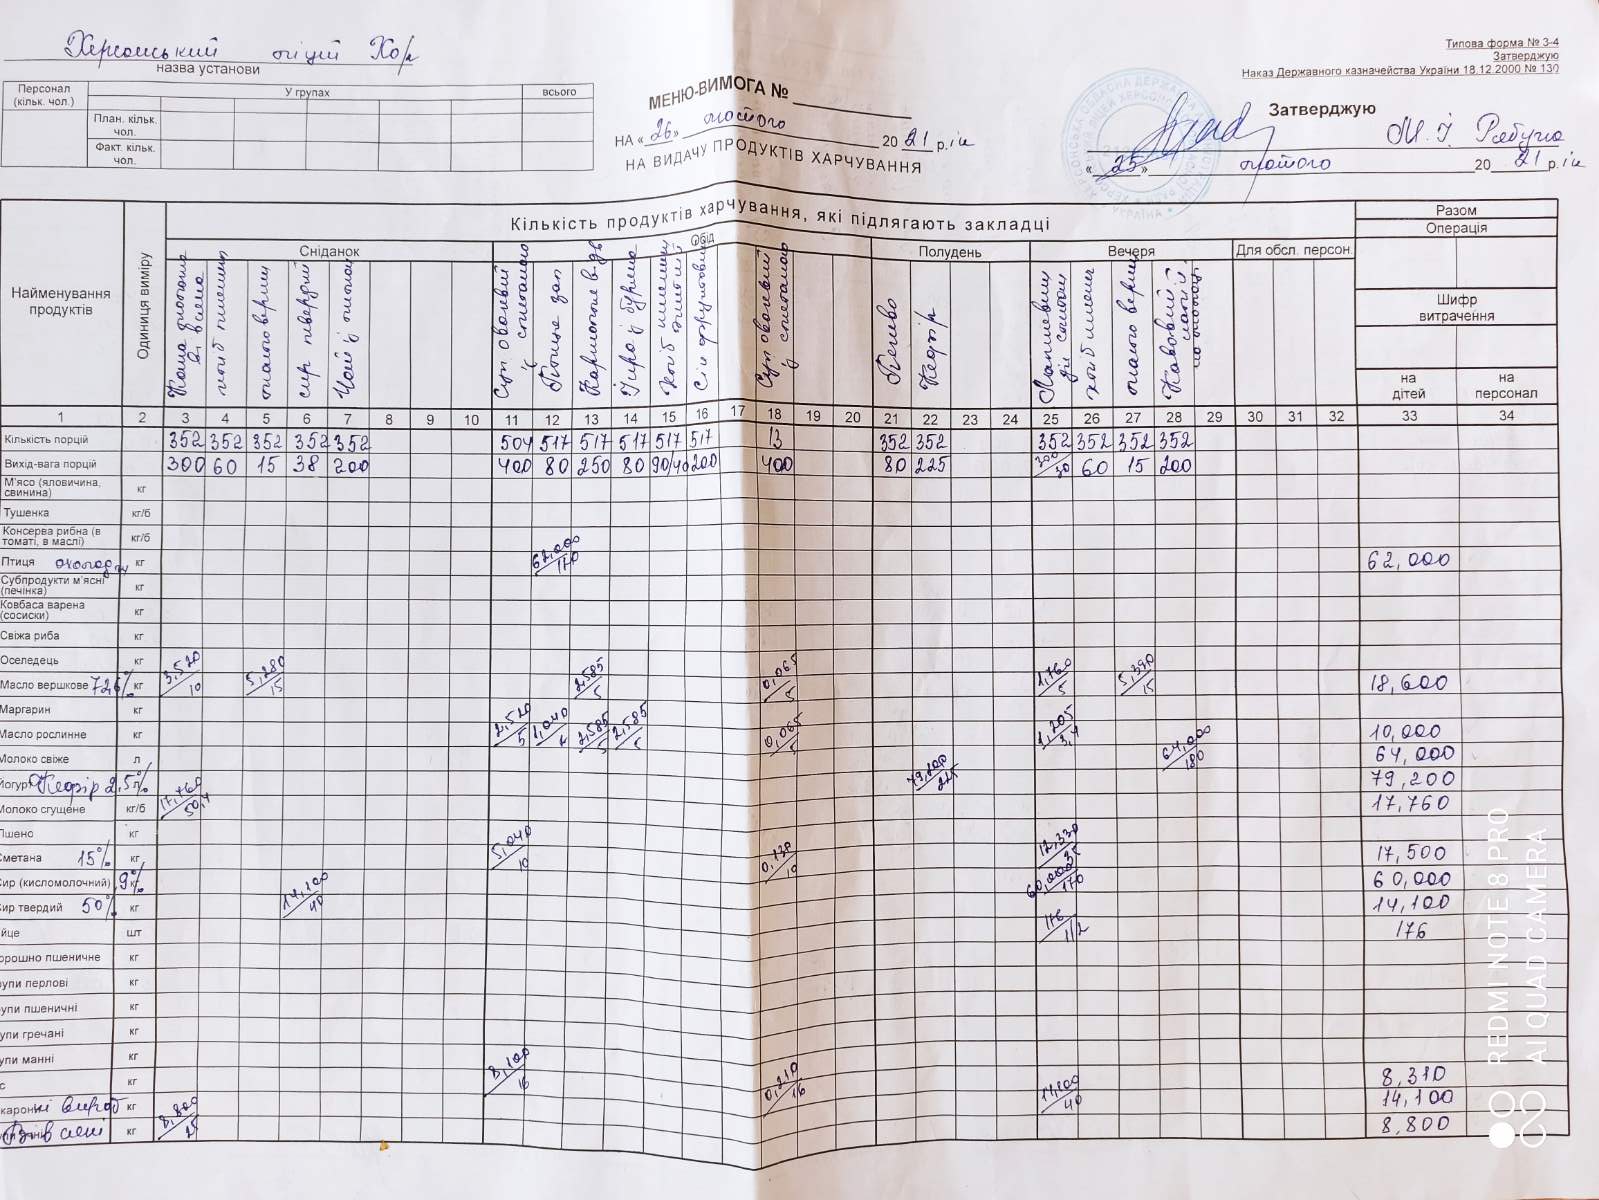 Херсонський ліцей Хор
назва установи
Типова форма № З-4
Затверджую
Наказ Державного казначейства України 18.12.2000 № 130
Персонал (кільк. чол.)
У групах
всього
План. кільк. чол.
Факт. кільк. чол.
МЕНЮ-ВИМОГА №
НА «26» лютого 2021 р.
НА ВИДАЧУ ПРОДУКТІВ ХАРЧУВАННЯ
Затверджую
«25» лютого 2021 р.
Найменування продуктів
Одиниця виміру
Кількість продуктів харчування, які підлягають закладці
Разом
Операція
Сніданок
Обід
Полудень
Вечеря
Для обсл. персон.
Шифр витрачення
на дітей
на персонал
Каша молочна
хліб пшенич
масло верш
сир твердий
Чай з лимон
Суп овочевий зі сметаною
Птиця зап
Картопля в-дв
Ікра з буряка
Суп овочевий зі сметаною
Печиво
Кефір
хліб пшенич
масло верш
1 2 3 4 5 6 7 8 9 10 11 12 13 14 15 16 17 18 19 20 21 22 23 24 25 26 27 28 29 30 31 32 33 34
Кількість порцій 352 352 352 352 352 504 517 517 517 517 517 13 352 352 352 352 352 352
Вихід-вага порцій 300 60 15 38 200 400 80 250 80 90/40 200 400 80 225 300/30 60 15 200
М'ясо (яловичина, свинина) кг
Тушенка кг/б
Консерва рибна (в томаті, в маслі) кг/б
Птиця охолодж кг 62,000/120 62,000
Субпродукти м'ясні (печінка) кг
Ковбаса варена (сосиски) кг
Свіжа риба кг
Оселедець кг
Масло вершкове 72,6% кг 3,520/10 5,280/15 2,585/5 0,065/5 1,760/5 5,390/15 18,600
Маргарин кг
Масло рослинне кг 2,520/5 2,585/5 2,585/5 0,065/5 1,205/3,4 10,000
Молоко свіже л 64,000/180 64,000
Йогурт Кефір 2,5% 79,200/225 79,200
Молоко сгущене кг/б 17,760/50,4 17,760
Пшено кг
Сметана 15% кг 5,040/10 0,130/10 12,330/35 17,500
Сир (кисломолочний) 9% кг 60,000/170 60,000
Сир твердий 50% кг 14,100/40 14,100
йце шт 176/1/2 176
орошно пшеничне кг
рупи перлові кг
рупи пшеничні кг
рупи гречані кг
рупи манні кг
с кг 8,100/16 0,210/16 8,310
каронні вироб кг 14,100/40 14,100
Вівсяні кг 8,800/25 8,800
REDMI NOTE 8 PRO
AI QUAD CAMERA